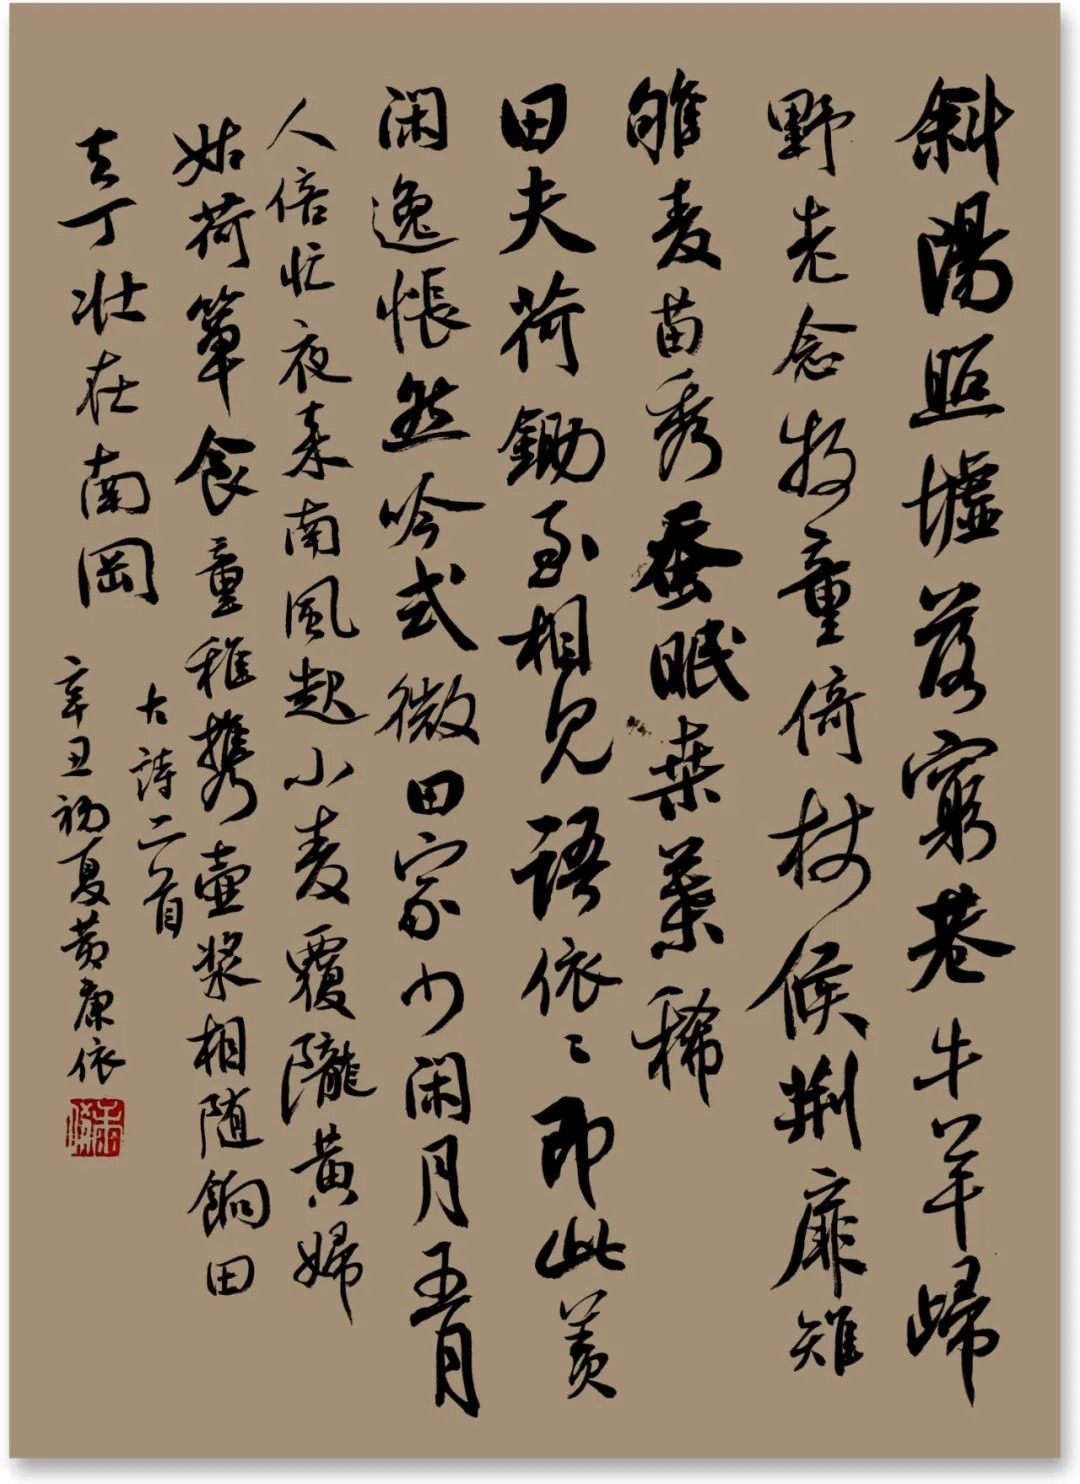 斜陽照墟落窮巷牛羊歸
野老念牧童倚杖候荆扉雉
雊麦苗秀蚕眠桒葉稀
田夫荷鋤至相見語依〻即此羡
闲逸悵然吟式微田家少闲月五月
人倍忙夜来南風起小麦覆隴黄婦
姑荷箪食童稚携壶漿相随餉田
去丁壮在南岡
古詩二首
辛丑初夏黄康依